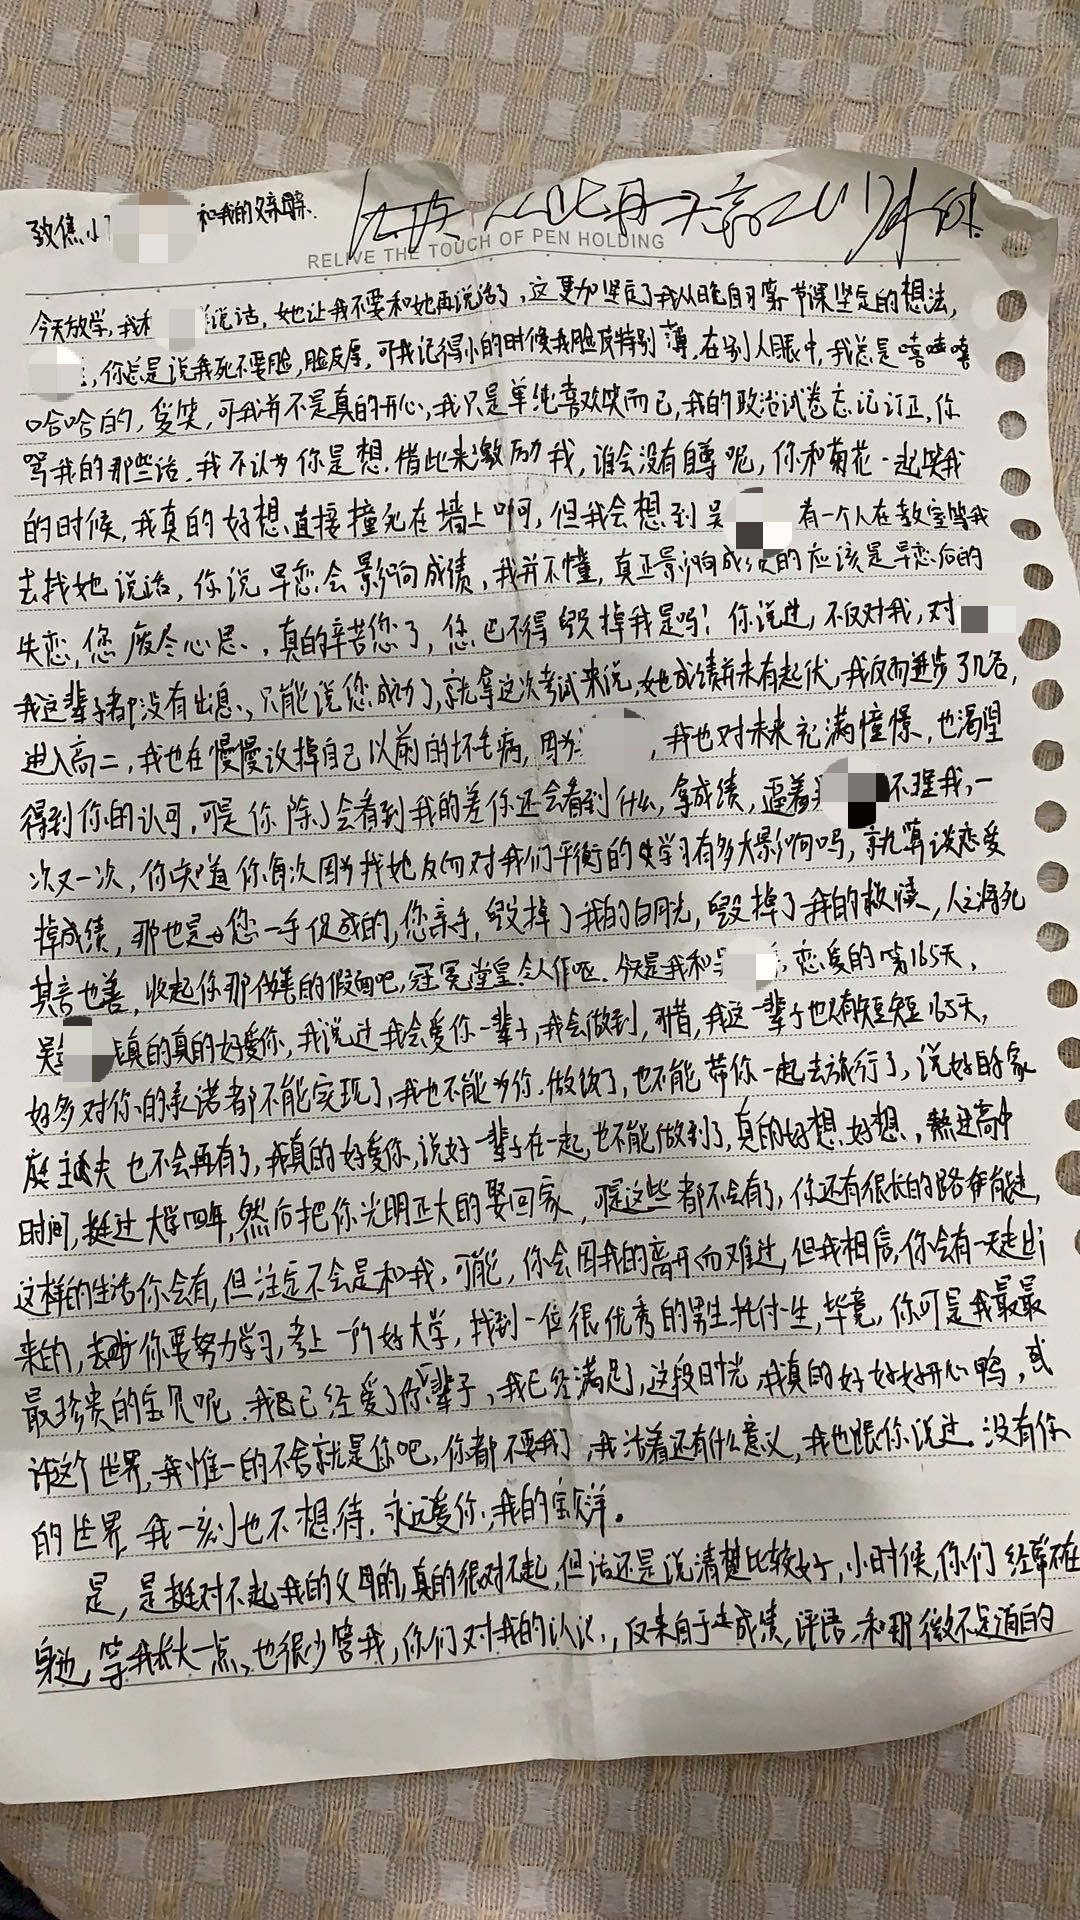 致焦小 和我的父亲母亲.
RELIVE THE TOUCH OF PEN HOLDING
今天放学,我和 说话,她让我不要和她再说话了,这更加坚定了我从晚自习第一节课坚定的想法,
,你总是说我死不要脸,脸皮厚,可我记得小的时候我脸皮特别薄,在别人眼中,我总是嘻嘻嘻
哈哈哈的,爱笑,可我并不是真的开心,我只是单纯喜欢笑而已,我的政治试卷忘记订正,你
骂我的那些话,我不认为你是想借此来激励我,谁会没有自尊呢,你和菊花一起笑我
的时候,我真的好想直接撞死在墙上啊,但我会想到吴 有一个人在教室等我
去找她说话,你说早恋会影响成绩,我并不懂,真正影响成绩的应该是早恋后的
失恋,您废尽心思,真的辛苦您了,您巴不得毁掉我是吗!你说过,不仅对我,对
我这辈子都没有出息,只能说您成功了,就拿这次考试来说,她成绩并未有起伏,我反而进步了几名,
进入高二,我也在慢慢改掉自己以前的坏毛病,因为 ,我也对未来充满憧憬,也渴望
得到你的认可,可是你除了会看到我的差你还会看到什么,拿成绩,逼着吴 不理我,一
次又一次,你知道你每次因为找她反而对我们平衡的学习有多大影响吗,就算谈恋爱
掉成绩,那也是您一手促成的,您亲手毁掉了我的白月光,毁掉了我的救赎,人之将死
其言也善,收起你那 的假面吧,冠冕堂皇,令人作呕.今天是我和吴 恋爱的第165天,
吴 我真的真的好爱你,我说过我会爱你一辈子,我会做到,可惜,我这一辈子也只有短短165天,
好多对你的承诺都不能实现了,我也不能为你做饭了,也不能带你一起去旅行了,说好的家
庭主夫也不会再有了,我真的好爱你,说好一辈子在一起,也不能做到了,真的好想,好想,熬过高中
时间,挺过大学四年,然后把你光明正大的娶回家,可是这些都不会有了,你还有很长的路 能走,
这样的生活你会有,但注定不会是和我,可能,你会因我的离开而难过,但我相信,你会有一天走出
来的,你要努力学习,考上一所好大学,找到一位很优秀的男生托付一生,毕竟,你可是我最最
最珍贵的宝贝呢.我已经爱了你一辈子,我已经满足了,这段时光,我真的好好好开心鸭,或
许这个世界,我惟一的不舍就是你吧,你都不要我了,我活着还有什么意义,我也跟你说过.没有你
的世界,我一刻也不想待,永远爱你,我的宝 .
是,是挺对不起我的父母的,真的很对不起,但话还是说清楚比较好,小时候,你们经常不在
身边,等我长大一点,也很少管我,你们对我的认识,仅来自于成绩,评语,和那微不足道的